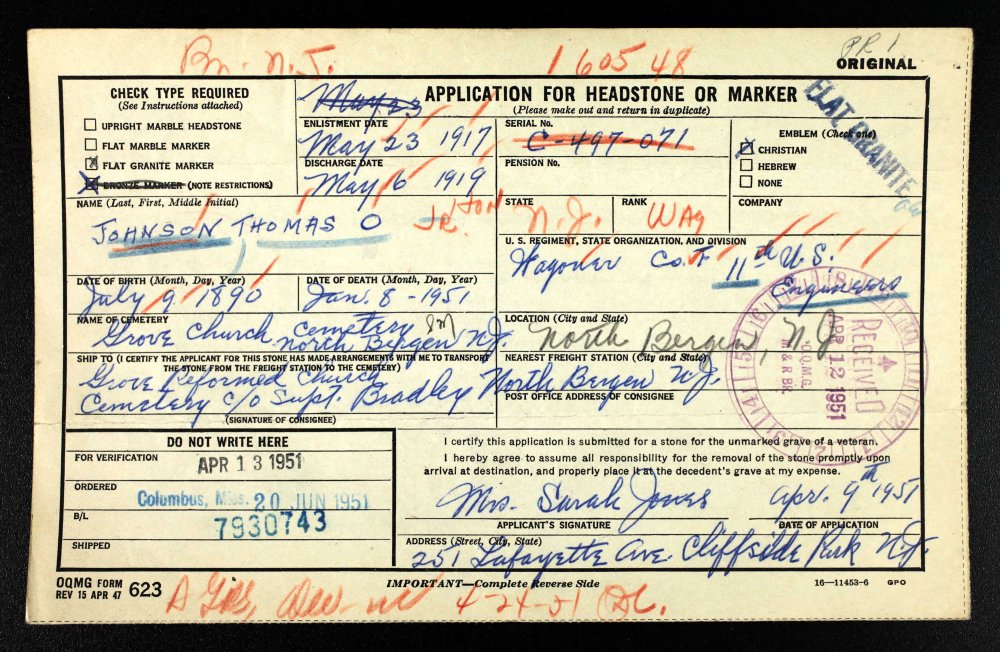 Bn. N.J.
160548
PR 1
ORIGINAL
CHECK TYPE REQUIRED
(See Instructions attached)
UPRIGHT MARBLE HEADSTONE
FLAT MARBLE MARKER
FLAT GRANITE MARKER
BRONZE MARKER (NOTE RESTRICTIONS)
ENLISTMENT DATE
May 23 1917
DISCHARGE DATE
May 6 1919
APPLICATION FOR HEADSTONE OR MARKER
(Please make out and return in duplicate)
SERIAL No.
C-497-071
PENSION No.
EMBLEM (Check one)
CHRISTIAN
HEBREW
NONE
FLAT GRANITE
NAME (Last, First, Middle Initial)
JOHNSON THOMAS O
JR.
STATE
N.J.
RANK
WAG
COMPANY
U. S. REGIMENT, STATE ORGANIZATION, AND DIVISION
Wagoner Co. F 11th U.S.
Engineers
DATE OF BIRTH (Month, Day, Year)
July 9 1890
DATE OF DEATH (Month, Day, Year)
Jan. 8 - 1951
NAME OF CEMETERY
Grove Church Cemetery
North Bergen N.J.
LOCATION (City and State)
North Bergen, N.J
SHIP TO (I CERTIFY THE APPLICANT FOR THIS STONE HAS MADE ARRANGEMENTS WITH ME TO TRANSPORT
THE STONE FROM THE FREIGHT STATION TO THE CEMETERY)
Grove Reformed Church
Cemetery c/o Supt. Bradley
(SIGNATURE OF CONSIGNEE)
NEAREST FREIGHT STATION (City and State)
North Bergen N.J.
POST OFFICE ADDRESS OF CONSIGNEE
RECEIVED
APR 12 1951
O.Q.M.G.
M & R BR.
DO NOT WRITE HERE
FOR VERIFICATION
APR 13 1951
ORDERED
Columbus, Miss. 20 JUN 1951
B/L
7930743
SHIPPED
I certify this application is submitted for a stone for the unmarked grave of a veteran.
I hereby agree to assume all responsibility for the removal of the stone promptly upon
arrival at destination, and properly place it at the decedent's grave at my expense.
Mrs. Sarah Jones
Apr. 9th 1951
APPLICANT'S SIGNATURE
DATE OF APPLICATION
ADDRESS (Street, City, State)
251 Lafayette Ave. Cliffside Park N.J.
OQMG FORM
REV 15 APR 47 623
IMPORTANT—Complete Reverse Side
16—11453-6 GPO
4-24-51